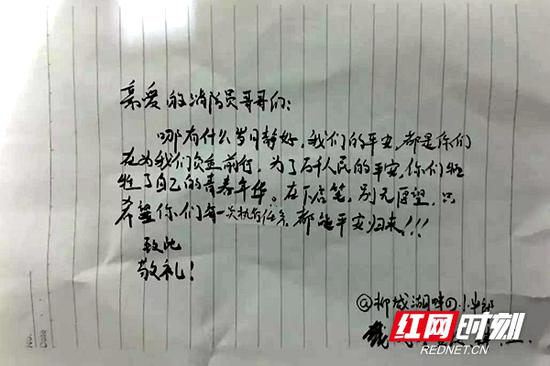 亲爱的消防员哥哥们:
哪有什么岁月静好,我们的平安,都是你们
在为我们负重前行,为了万千人民的平安,你们牺
牲了自己的青春年华。在下启笔,别无所望,只
希望你们每一次执行任务,都能平安归来!!!
致此
敬礼!
@柳城湖畔の
红网时刻
REDNET.CN